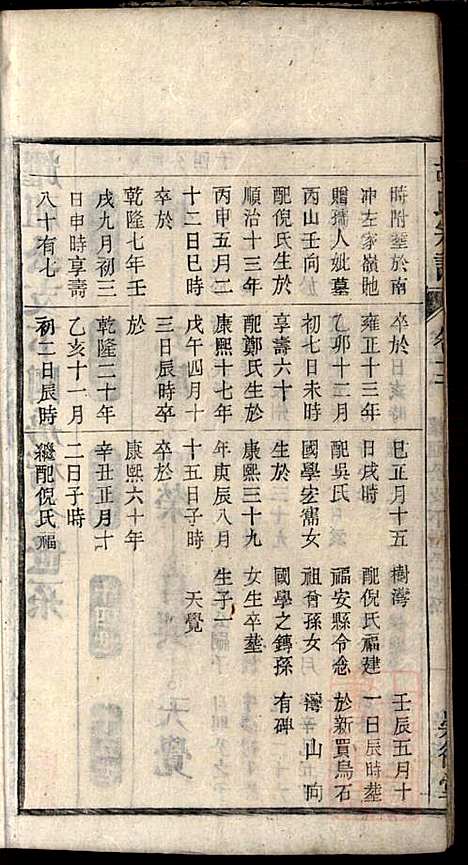 氏宗譜
時附塟於南
冲左家嶺虵
贈孺人妣墓
丙山壬向
配倪氏生於
順治十三年
丙申五月二
十二日巳時
卒於
乾隆七年壬
戌九月初三
日申時享壽
八十有七
卒於
雍正十三年
乙卯十二月
初七日未時
享壽六十
配鄭氏生於
康熙十七年
戊午四月十
三日辰時卒
於
乾隆二十年
乙亥十一月
初二日辰時
巳正月十五
日戌時
配吳氏
國學宏女
生於
康熙三十九
年庚辰八月
十五日子時
卒於
康熙六十年
辛丑正月十
二日子時
繼配倪氏福
樹灣
配倪氏福建
福安縣令念
祖曾孫女
國學之鏄孫
女生卒塟
生子一
天覺
壬辰五月十
一日辰時塟
於新買烏石
灣山向
有碑